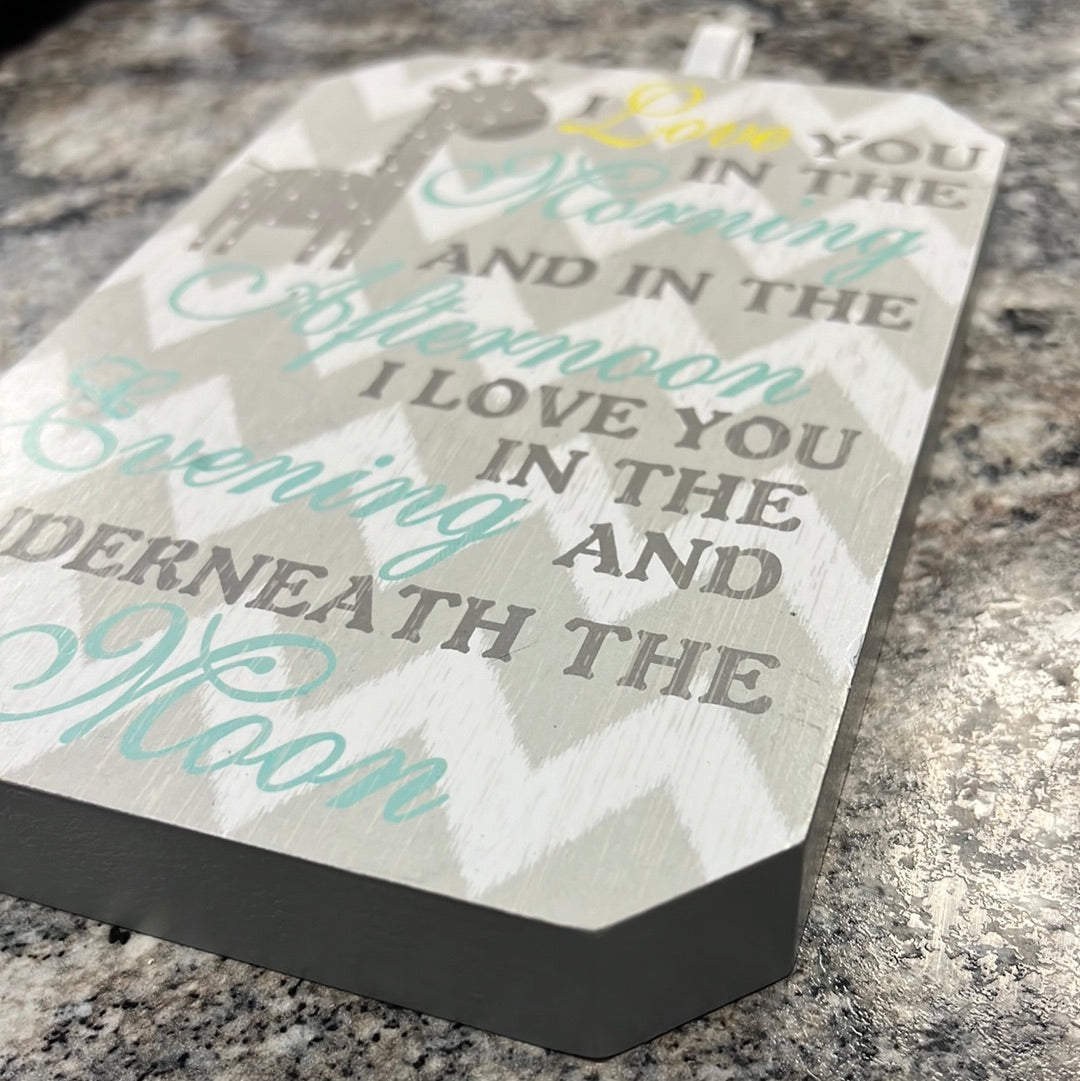 I Love YOU
IN THE
Morning
AND IN THE
Afternoon
I LOVE YOU
IN THE
Evening AND
DERNEATH THE
Moon